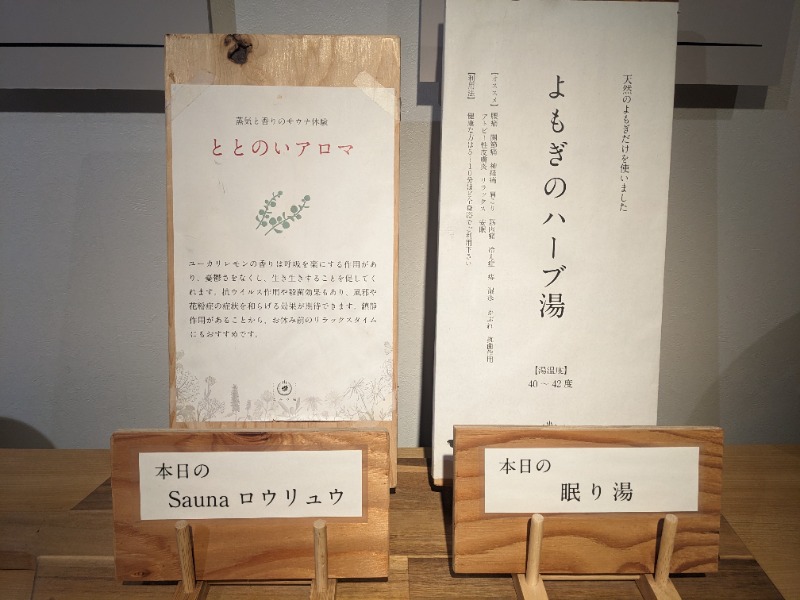 蒸気と香りのサウナ体験
ととのいアロマ
ユーカリレモンの香りは呼吸を楽にする作用があ
り、憂鬱さをなくし、生き生きすることを促してく
れます。抗ウイルス作用や殺菌効果もあり、風邪や
花粉症の症状を和らげる効果が期待できます。鎮静
作用があることから、お休み前のリラックスタイム
にもおすすめです。
本日の
Sauna ロウリュウ
天然のよもぎだけを使いました
よもぎのハーブ湯
【オススメ】 腰痛 関節痛 神経痛 肩こり 筋肉痛 冷え症 痔 湿疹 かぶれ 抗菌作用
アトピー性皮膚炎 リラックス 安眠
【利用法】 健康な方は5~10分ほど全身浴でご利用下さい
【湯温度】
40 ~ 42 度
本日の
眠り湯